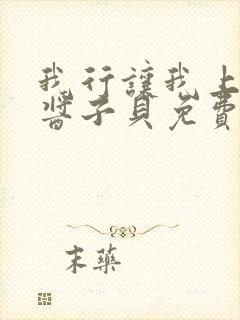 我行讓我上
醬子貝免費
末藥